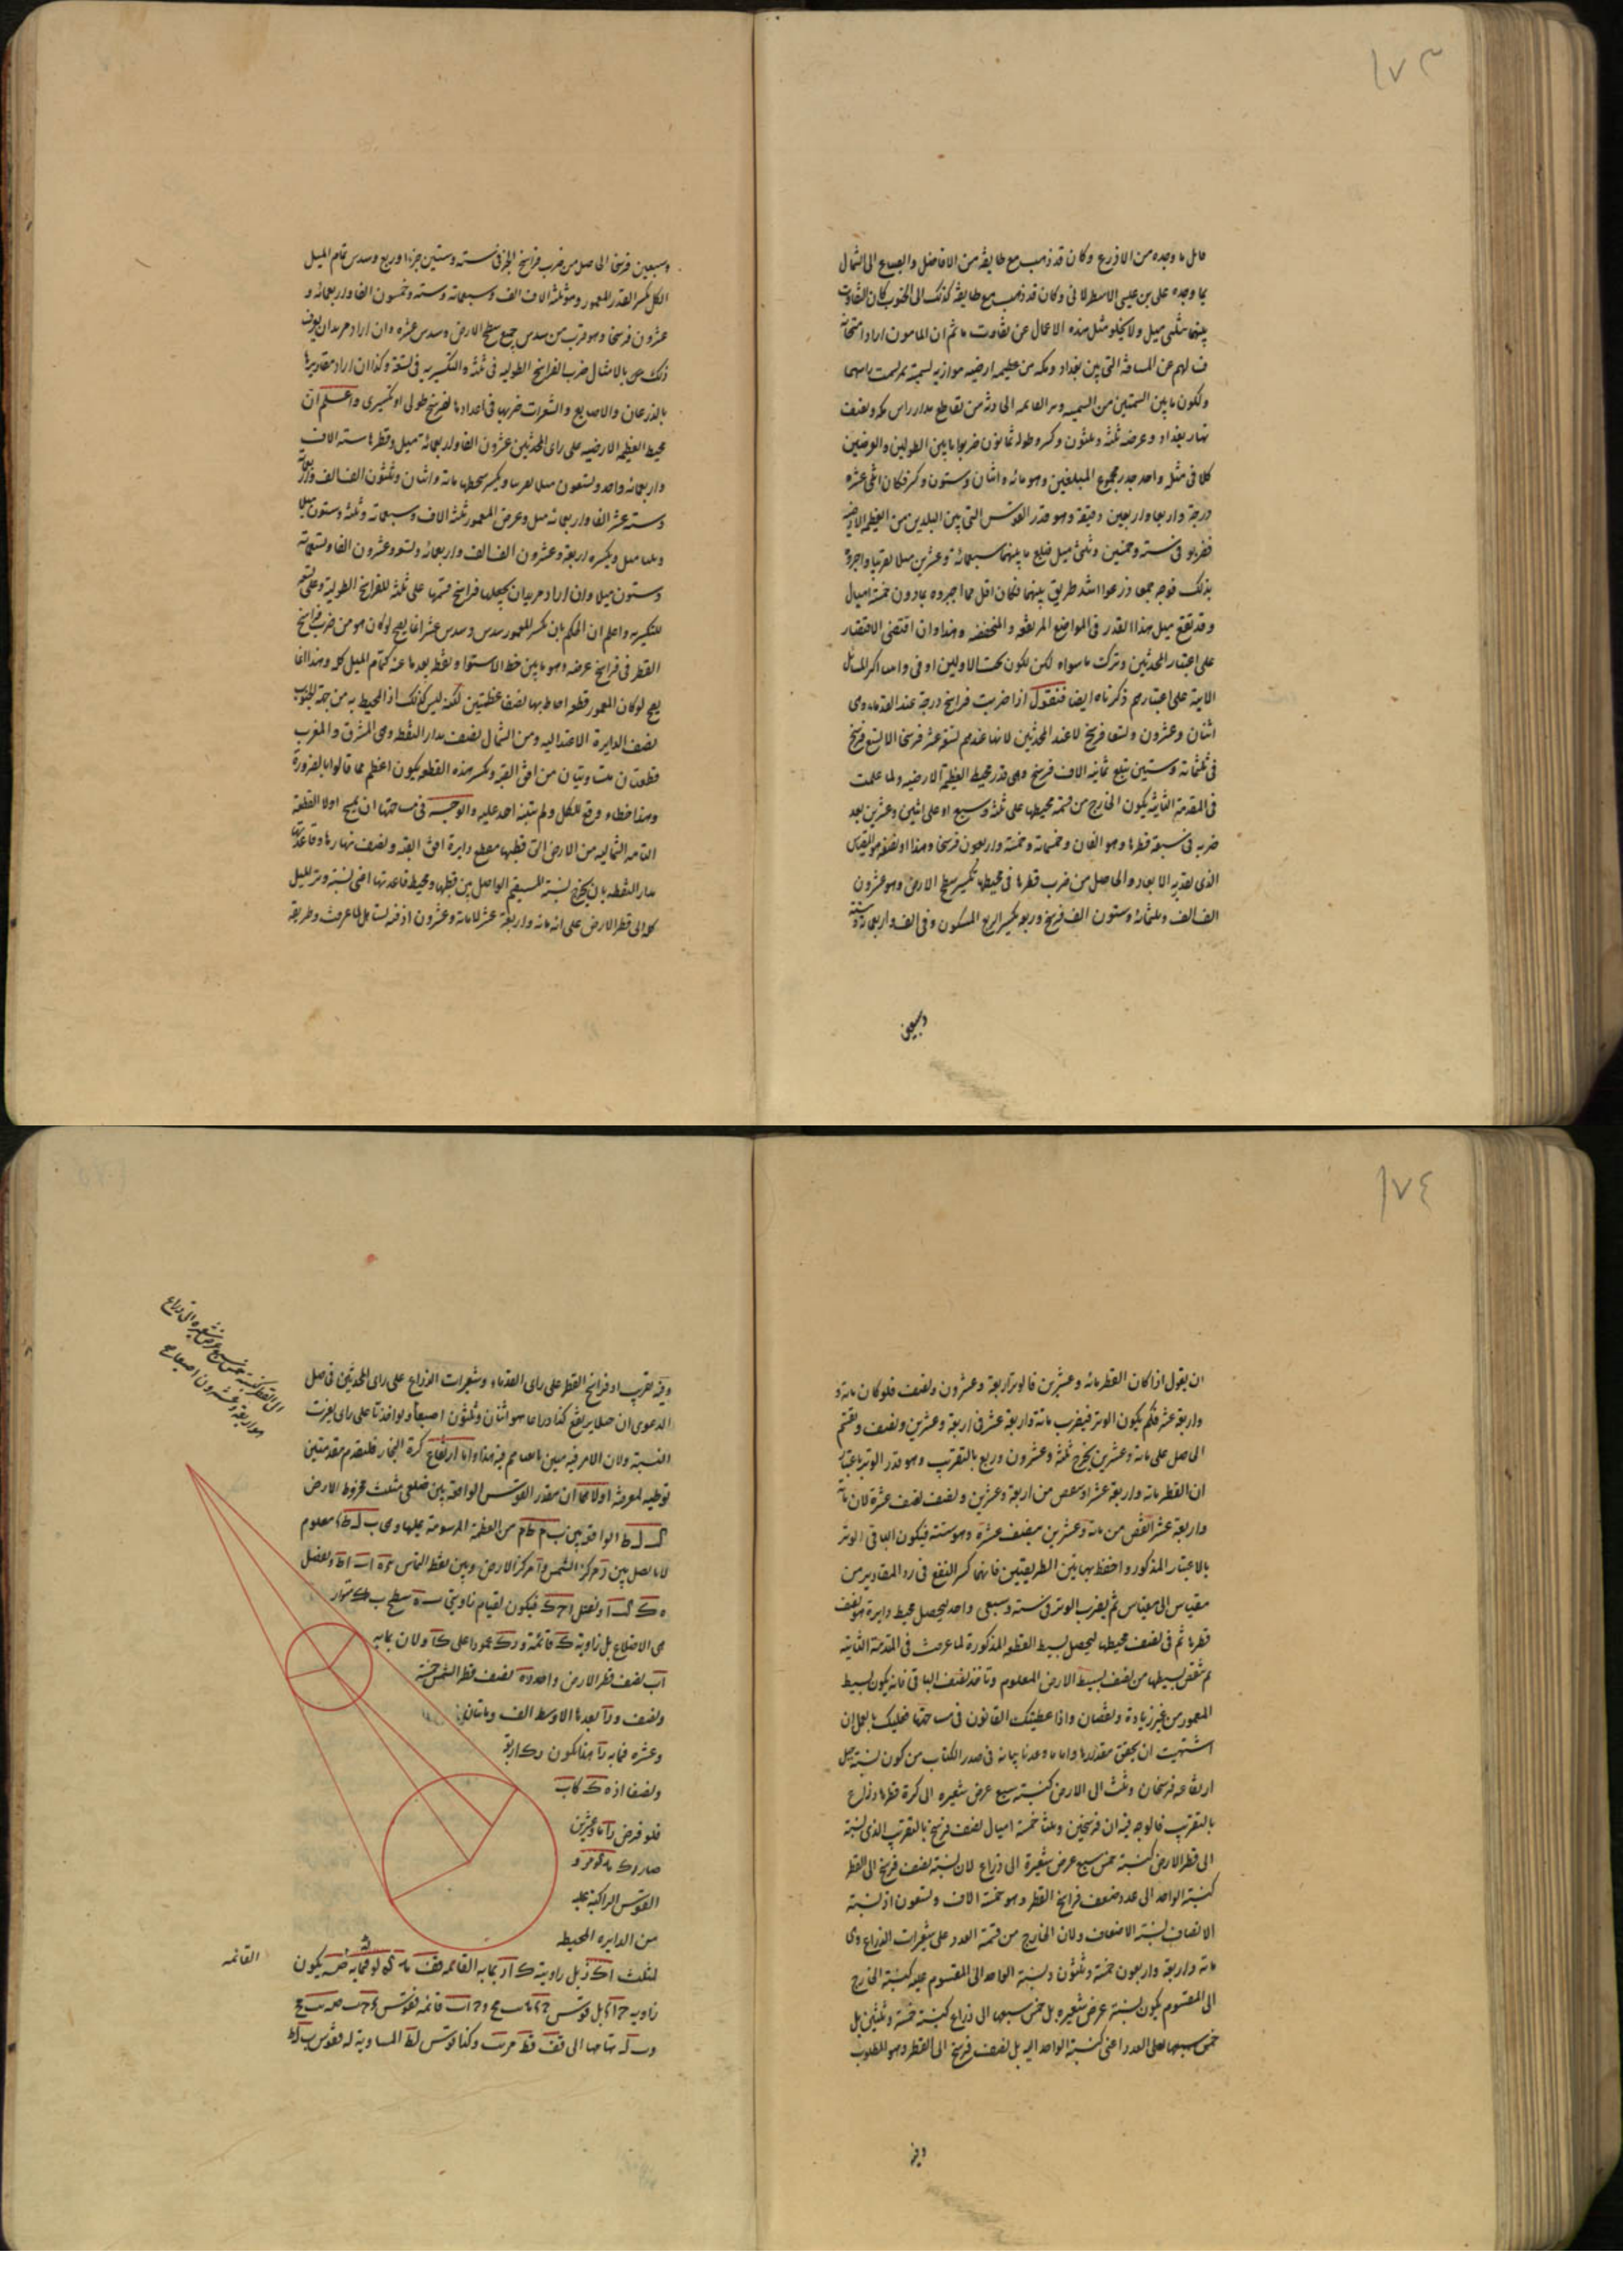 ١٧٣
قابل ما وجده من الاذرع وكان قد ذهب مع طايفة من الافاضل والصناع الى الشمال
بما وجده على بن عيسى الاسطرلابى وكان قد ذهب مع طايفة كذلك الى الجنوب كان التفاوت
بينهما ثلثى ميل ولا يخلو مثل هذه الاعمال عن تفاوت ما ثم ان المامون اراد امتحانه
لهم عن المسافة التى بين بغداد ومكة من عظيمة ارضية موازية لسمتية تمر بسمت راسهما
ولكون ما بين السمتين من السمتية وتر القائمة الحادثة من تقاطع مدار راس مكه ونصف
نهار بغداد وعرضه ثلثة وثلثون وكسر وطوله ثمانون ضربوا ما بين الطولين والعرضين
كلا فى مثله واخذ جذر مجموع المبلغين وهو مائه واثنان وستون وكسر فكان اثنى عشره
درجة واربعا واربعين دقيقة وهو قدر القوس التى بين البلدين من العظيمة الارضية
فضربوه فى ستة وخمسين وثلثى ميل فبلغ ما بينهما سبعمائة وعشرين ميلا تقريبا واخبروه
بذلك فوجه جمعا ذرعوا اسد طريق بينهما فكان اقل مما اخبروه بما دون خمسة اميال
وقد تقع مثل هذا القدر فى المواضع المرتفعة والمنخفضة وهذا وان اقتضى الاقتصار
على اعتبار المحدثين وترك ما سواه لكن لكون بحث الاولين اوفى واصابه اكثر المسائل
الاتية على اعتبارهم ذكرناه ايضا فنقول اذا ضربت فراسخ درجة عند القدماء وهى
اثنان وعشرون وتسعا فرسخ لا عند المحدثين لانها عندهم تسعة عشر فرسخا الا تسع فرسخ
فى ثلثمائة وستين تبلغ ثمانية الاف فرسخ وهى قدر محيط العظيمة الارضيه ولما علمت
فى المقدمة الثانية يكون الخارج من قسمة محيطها على ثلثة وسبع او على اثنين وعشرين بعد
ضربه فى سبعة قطرها وهو الفان وخمسمائة وخمسة واربعون فرسخا وهذا او نصفه هو المقياس
الذى تقدر به الابعاد والحاصل من ضرب قطرها فى محيطها تكسير سطح الارض وهو عشرون
الف الف وثلثمائة وستون الف فرسخ وربعه تكسير الربع المسكون وفى الف واربعمائة وستة
وسبعين
وسبعين فرسخا الحاصل من ضرب فراسخ الجزء فى ستة وستين جزءا وربع وسدس تمام الميل
الكلى تكسر القدر المعمور وهو ثلثة الاف الف وسبعمائة وستة وخمسون الفا واربعمائه و
عشرون فرسخا وهو قرب من سدس جميع سطح الارض وسدس عشره وان اراد مريد ان يعرف
ذلك بالاميال ضرب الفراسخ الطوليه فى ثلثة والتكسيريه فى تسعة وكذا ان اراد مقاديرها
بالذرعان والاصابع والشعيرات ضربها فى اعداد ما لفرسخ طولى او تكسيرى واعلم ان
محيط العظيمة الارضيه على راى المحدثين عشرون الفا واربعمائه ميل وقطرها ستة الاف
واربعمائه واحد وتسعون ميلا تقريبا وتكسير محيطها مائة واثنان وثلثون الف الف واربعمائة
وستة عشر الفا واربعمائه ميل وعرض المعمور ثلثة الاف وسبعمائة وثلثة وستون ميلا
وثلثا ميل وتكسيره اربعة وعشرون الف الف واربعمائه وتسعة وعشرون الفا وتسعمائة
وستون ميلا وان اراد مريد ان يجعلها فراسخ قسمها على ثلثة للفراسخ الطولية وعلى تسعة
للتكسيرية واعلم ان الحكم بان تكسر المعمور سدس وسدس عشر انما يصح لو كان هو من ضرب فراسخ
القطر فى فراسخ عرضه وهو ما بين خط الاستوا ونقطة بعدها عنه كتمام الميل كله وهذا انما
يصح لو كان المعمور قطعة احاط بها نصفا عظيمتين لكنه ليس كذلك اذ المحيط به من جهة الجنوب
نصف الدايرة الاعتداليه ومن الشمال نصف مدار النقطة ومن المشرق والمغرب
قطعتان متساويتان من افق القبة وتكسر هذه القطعة يكون اعظم مما قالوا بالضرورة
وهذا خطاء وقع للكل ولم يتنبه احد عليه والوجه فى مساحتها ان يمسح اولا القطعة
التامه الشماليه من الارض التى قطبها مقطع دايرة افق القبة ونصف نهارها وقاعدتها
مدار النقطة بان يخرج نسبة المستقيم الواصل بين قطبها ومحيط قاعدتها اعنى نسبة وتر الميل
كله الى قطر الارض على انه مائه واربعة عشر لا مائة وعشرون اذ فيه تساهل لما عرفت وطريقه
١٧٤
ان يقول اذا كان القطر مائه وعشرين فالوتر اربعة وعشرون ونصف فلو كان مائة و
واربعة عشر فكم يكون الوتر فيضرب مائة واربعة عشر فى اربعة وعشرين ونصف ويقسم
الحاصل على مائة وعشرين يخرج ثلثة وعشرون وربع بالتقريب وهو قدر الوتر باعتبار
ان القطر مائه واربعة عشر او ينقص من اربعة وعشرين ونصف نصف عشرة لان مائة
واربعة عشر انقص من مائة وعشرين بنصف عشره وهو ستة فيكون الباقى الوتر
بالاعتبار المذكور واحفظ بهاتين الطريقتين فانهما كثير النفع فى رد المقادير من
مقياس الى مقياس ثم يضرب الوتر فى ستة وسبعى واحد ليحصل محيط دايرة هو نصف
قطرها ثم فى نصف محيطها ليحصل بسيط القطعة المذكورة لما عرفت فى المقدمة الثانية
ثم تنقص بسيطها من نصف بسيط الارض المعلوم وتاخذ نصف الباقى فانه يكون بسيط
المعمور من غير زيادة ونقصان واذا عطيتك القانون فى مساحتها فعليك بالعمل ان
اشتهيت ان تحقق مقدارها واما ما وعدنا بيانه فى صدر الكتاب من كون نسبة جبل
ارتفاعه فرسخان وثلث الى الارض كنسبة سبع عرض شعيره الى كرة قطرها ذراع
بالتقريب فالوجه فيه ان فرسخين وثلثا خمسة اميال نصف فرسخ بالتقريب الذى نسبة
الى قطر الارض كنسبة خمس سبع عرض شعيرة الى ذراع لان نسبة نصف فرسخ الى القطر
كنسبة الواحد الى عدد ضعف فراسخ القطر وهو خمسة الاف وتسعون اذ نسبة
الانصاف نسبة الاضعاف ولان الخارج من قسمة العدد على شعيرات الذراع وهى
مائة واربعة واربعون خمسة وثلثون ونسبة الواحد الى المقسوم عليه كنسبة الخارج
الى المقسوم يكون نسبة عرض شعيره بل خمس سبعها الى ذراع كنسبة خمسة وثلثين بل
خمس سبعها الى العدد اعنى كنسبة الواحد اليه بل نصف فرسخ الى القطر وهو المطلوب
وفيه
وفيه تقرب او فراسخ القطر على راى القدماء وشعيرات الذراع على راى المحدثين فاصل
الدعوى ان جبلا يرتفع كذا ذراعا هو اثنان وثلثون اصبعا ولو اخذنا على راى تغيرت
النسبة ولان الامر فيه هين فيه هذا واما ارتفاع كرة البخار فلنقدم مقدمتين
توطية لمعرفته اولاهما ان مقدار القوس الواقعة بين ضلعى مثلث مخروط الارض
الواقع بين من العظيمة المرسومة عليها وهى معلوم
لانا نصل بين مركز الشمس و مركز الارض وبين نقط التماس
فيكون لقيام زاويتى سطح متواز
ى الاضلاع بل زاوية قائمة و عمودا على ولان نسبة
اب نصف قطر الارض واحد و نصف قطر الشمس خمسة
ونصف و بعدها الاوسط الف ومائتان
وعشره فبما به هذا يكون اربعة
ونصفا اذ
فلو فرض مائة وعشرين
صار
القوس الراكبة عليه
من الدايره المحيطه
بمثلث بل زاوية بما به القائمة يكون
زاوية بل قوس قائمة فقوس
و تمامها الى وكذا قوس المساوية له فقوس
القائمه
الى القطر كنسبة خمس سبع عرض شعيره الى ذراع
هو اربعة وعشرون اصبعا صح